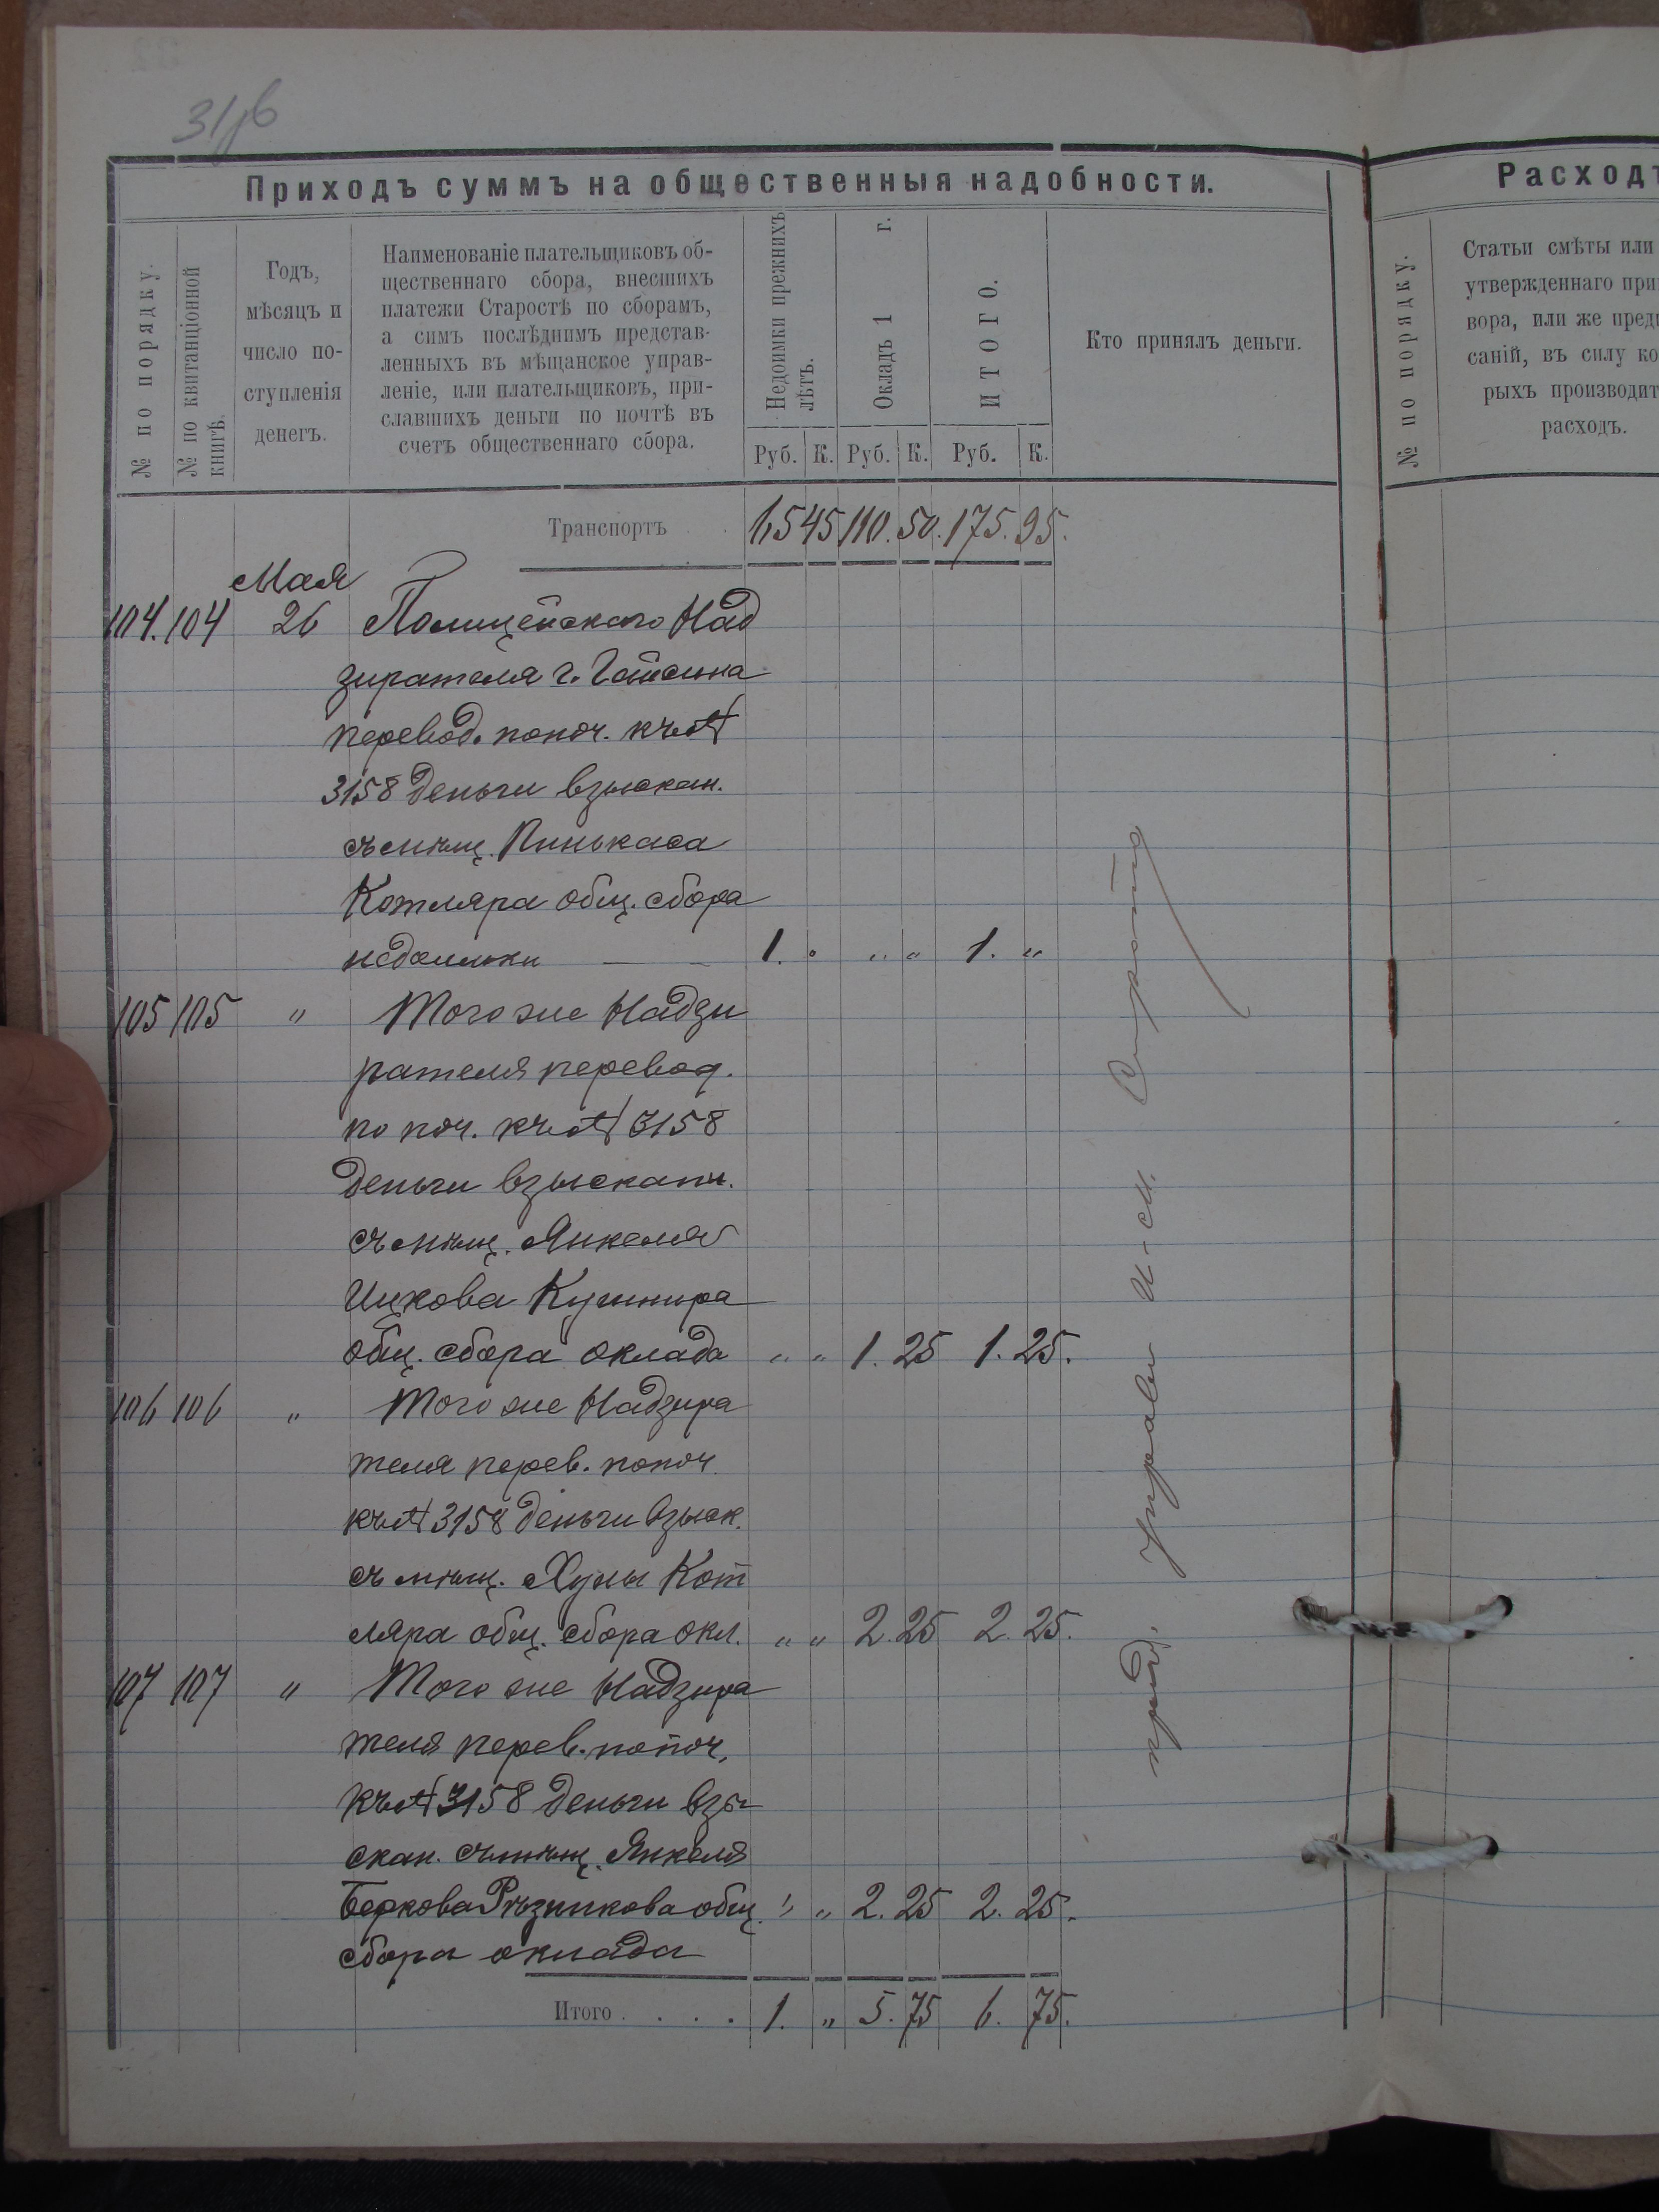 31/об
Приходъ суммъ на общественныя надобности.
№ по порядку.
№ по квитанціонной книгѣ.
Годъ,
мѣсяцъ и
число по-
ступленія
денегъ.
Наименованіе плательщиковъ об-
щественнаго сбора, внесшихъ
платежи Старостѣ по сборамъ,
а симъ послѣднимъ представ-
ленныхъ въ мѣщанское управ-
леніе, или плательщиковъ, при-
славшихъ деньги по почтѣ въ
счетъ общественнаго сбора.
Недоимки прежнихъ
лѣтъ.
Окладъ 1 г.
ИТОГО.
Руб. К. Руб. К. Руб. К.
Кто принялъ деньги.
Транспортъ 65 45 110. 50. 175. 95.
Мая
104. 104 26 Полицейского Над
зирателя г.
перевод. по поч. къ №
3158 деньги взыскан.
съ мѣщ. Пинькаса
Котляра общ. сбора
недоимки 1. " " " 1. "
105 105 " Того же Надзи
рателя перевод.
по поч. къ № 3158
деньги взысканн.
съ мѣщ. Янкеля
Ицкова Кушнира
общ. сбора оклада " " 1. 25 1. 25.
106 106 " Того же Надзира
теля перев. по поч.
къ № 3158 деньги взыск.
съ мѣщ. Хуны Кот
ляра общ. сбора окл. " " 2. 25 2. 25.
107 107 " Того же Надзира
теля перев. по поч.
къ № 3158 деньги взы
скан. съ мѣщ. Янкеля
Беркова Рѣзникова общ. " " 2. 25 2. 25.
сбора оклада
Итого . . . . 1. " 5. 75 6. 75.
Расходъ
№ по порядку.
Статьи смѣты или
утвержденнаго при
вора, или же пред
саній, въ силу ко
рыхъ производит
расходъ.